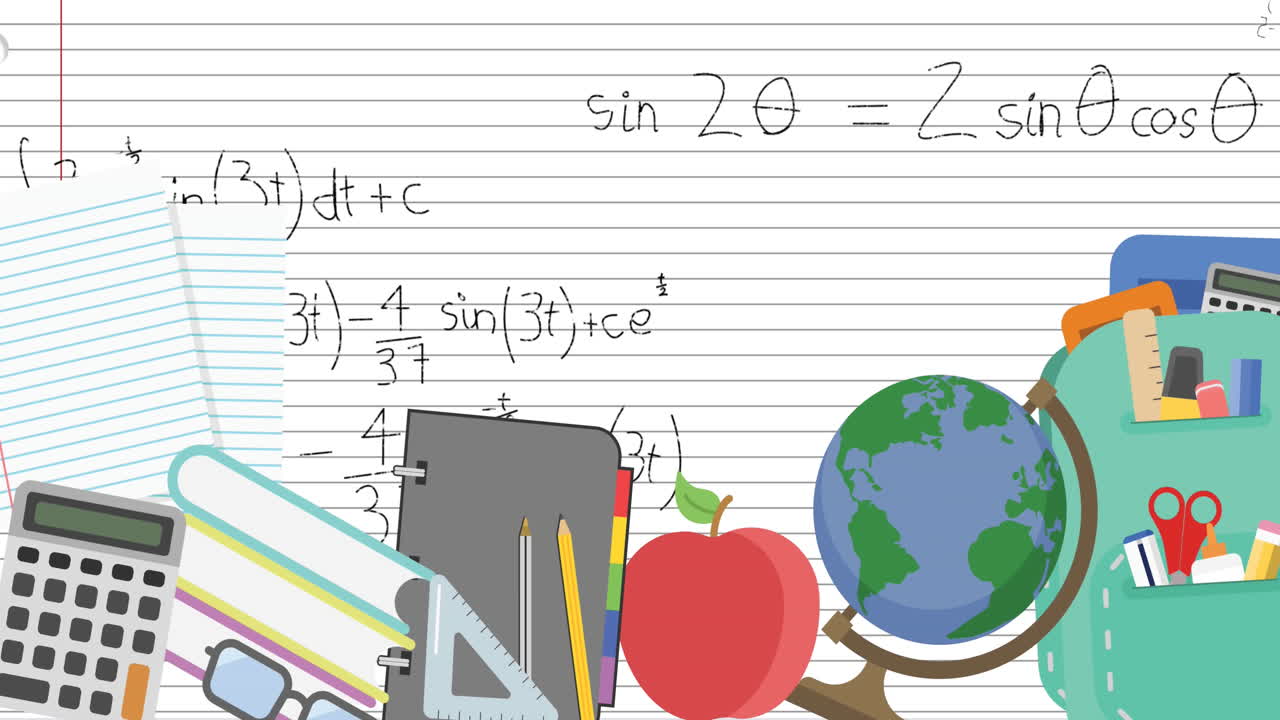 sin 2θ = 2 sinθ cosθ
(3t) dt + c
3t) - 4/37 sin(3t) + ce^(t/2)
- 4
3t)